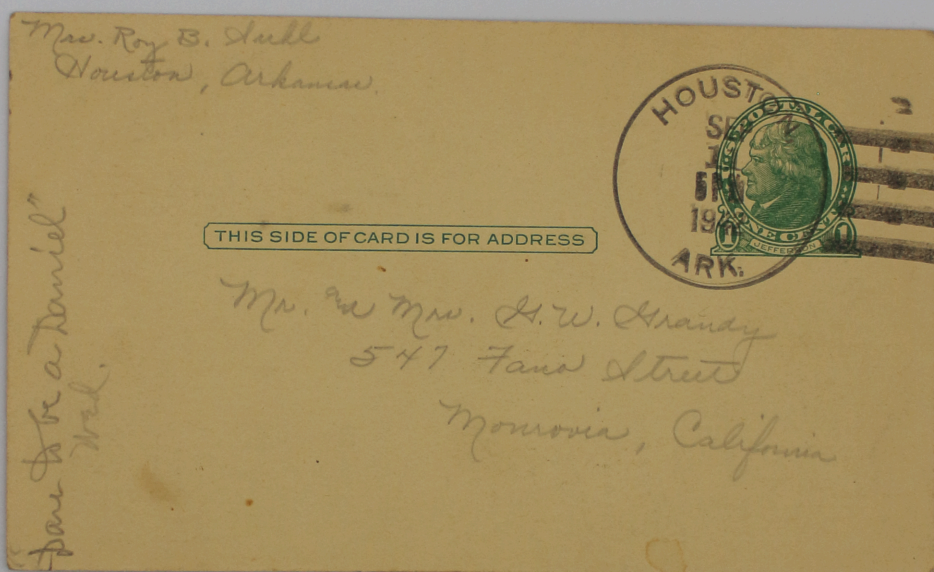 Mrs. Roy B.
Houston, Arkansas.
HOUSTON
ARK.
JEFFERSON
THIS SIDE OF CARD IS FOR ADDRESS
Mr. and Mrs. G. W. Grandy
547 Fano Street
Monrovia, California
Dare to be a Daniel"
Wed.